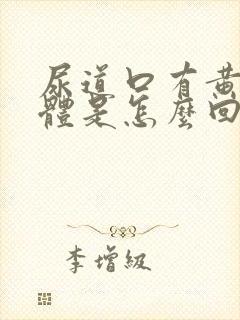 尿道口有黄
體是怎麼回
李增級